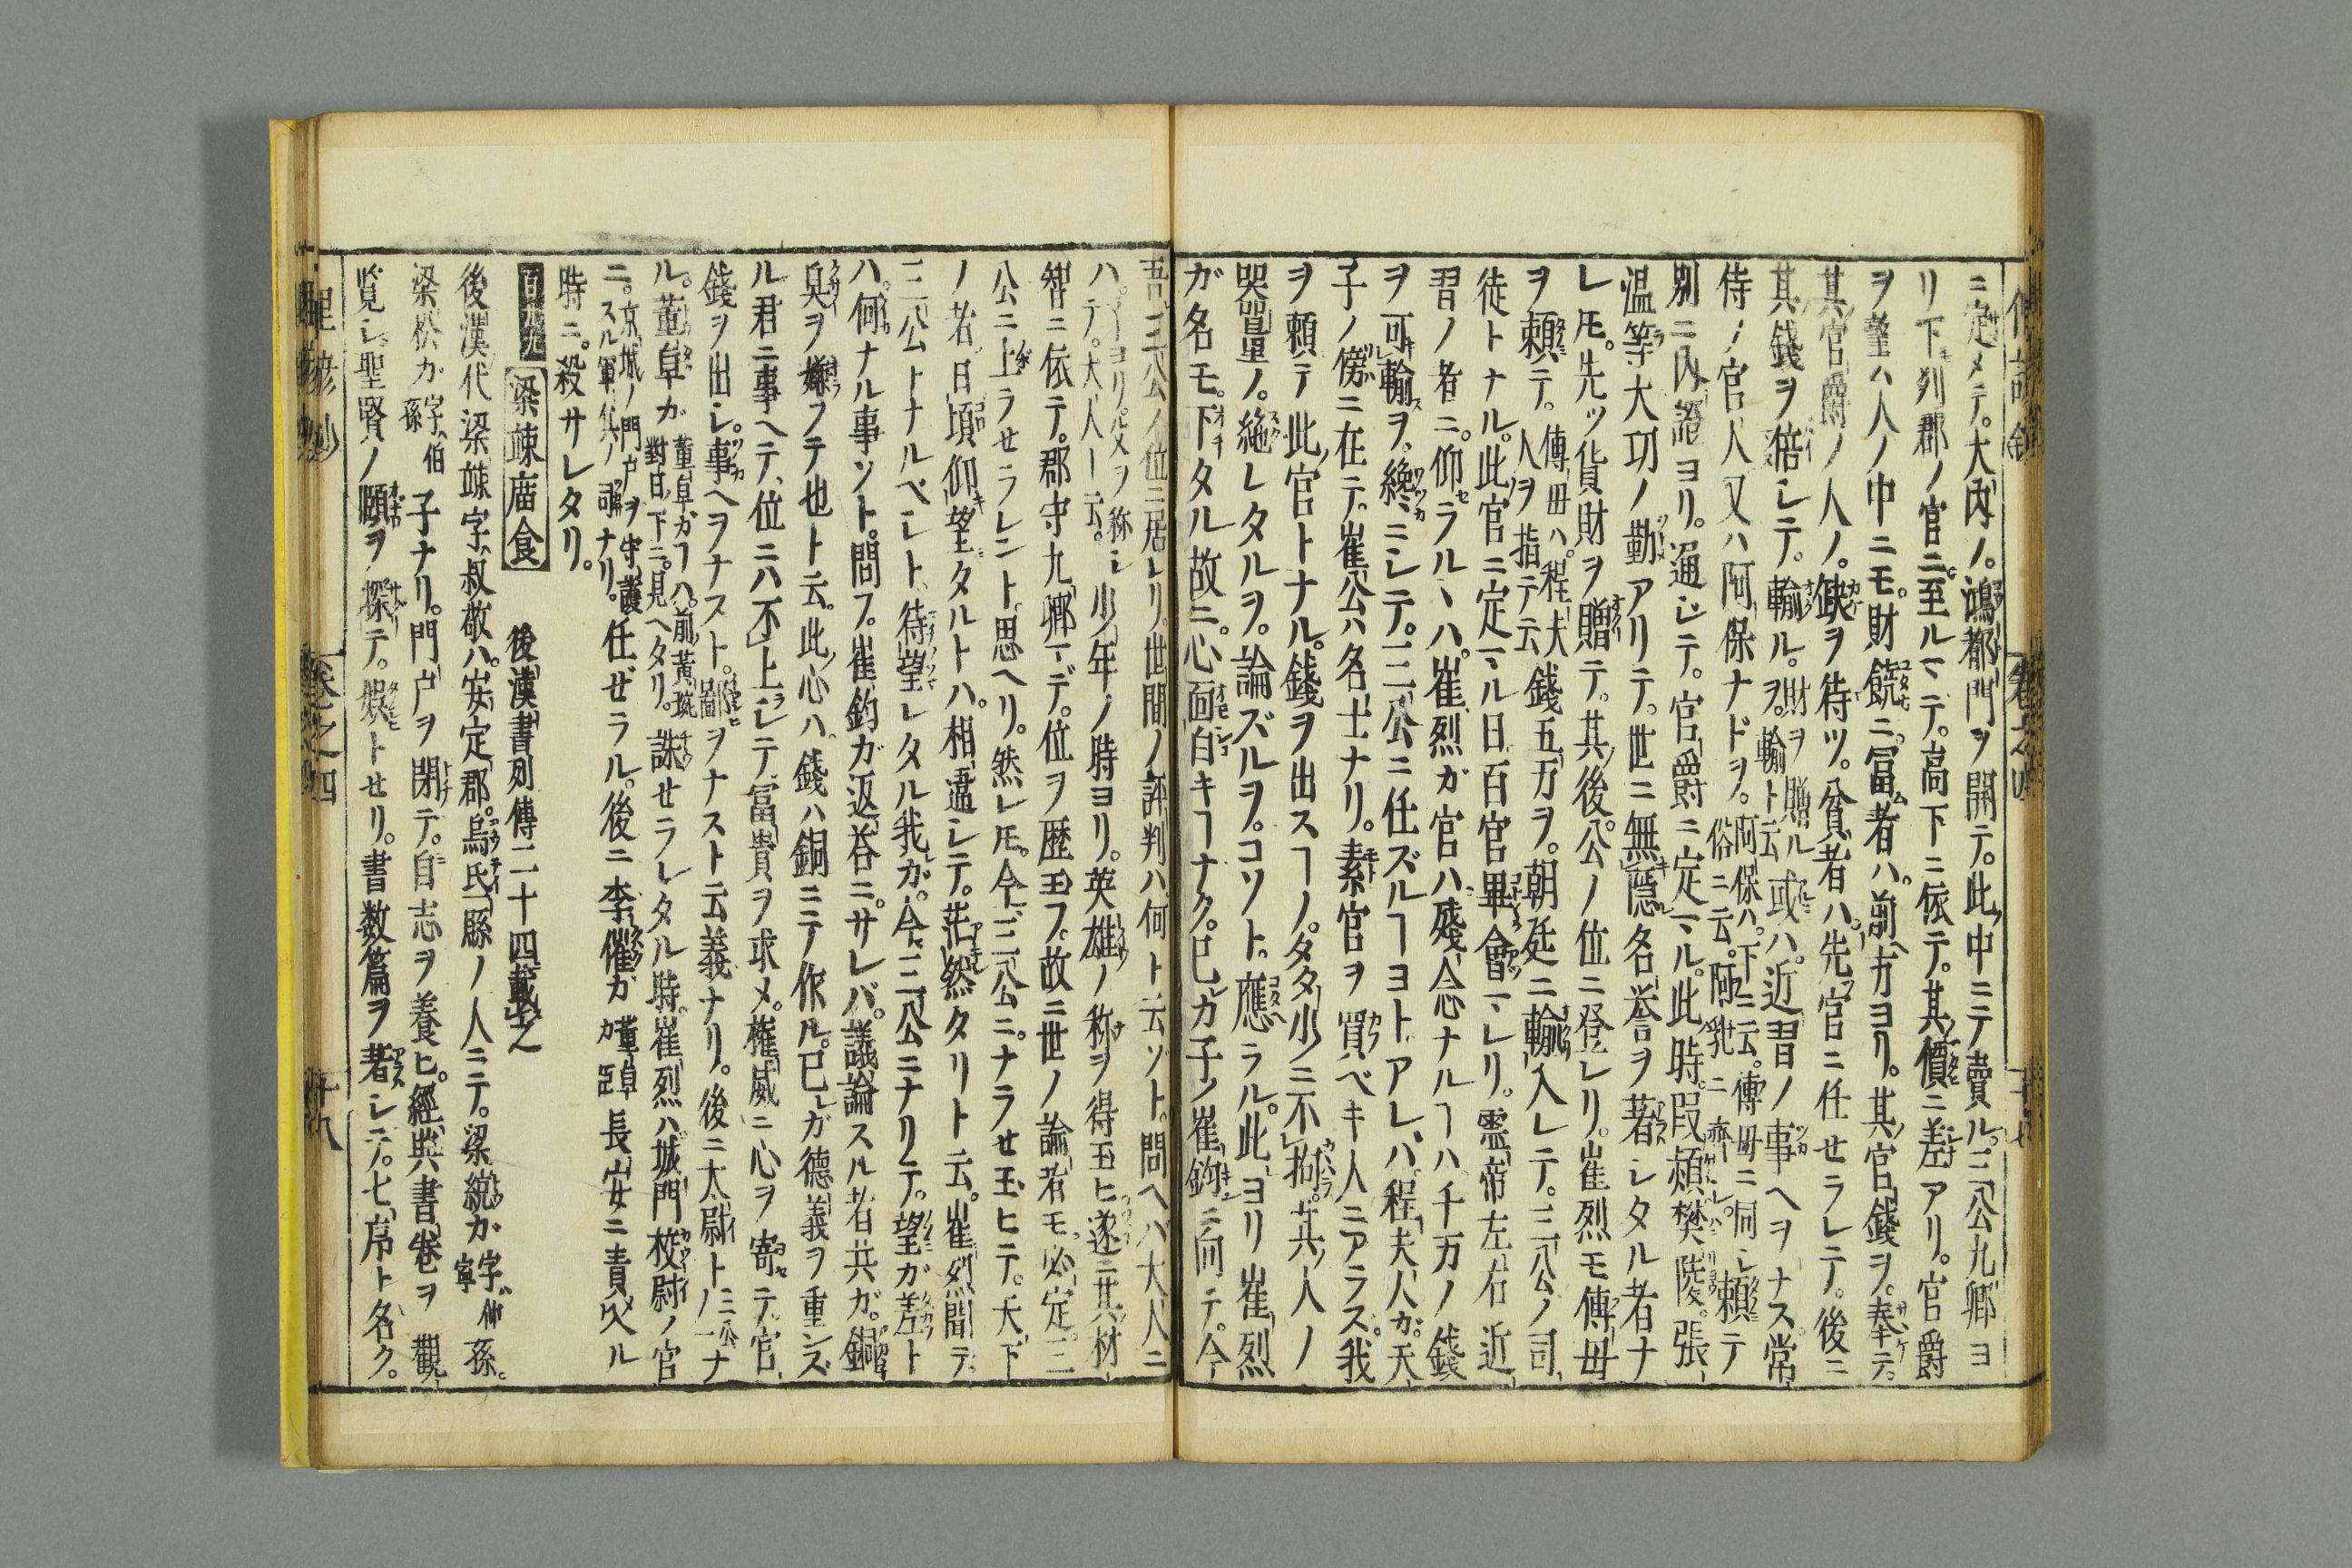 ニ定メテ。大内ノ。鴻都門ヲ開テ。此中ニテ賣ル。三公九卿ヨ
リ下列郡ノ官ニ至ルマテ。高下ニ依テ。其價ニ差アリ。官爵
ヲ望ハ人ノ中ニモ。財饒ニ冨者ハ。前方ヨリ。其官錢ヲ。奉テ。
其官爵ノ人ノ。缺ヲ待ツ。貧者ハ。先官ニ任セラレテ。後ニ
其錢ヲ倍シテ。輸ル。財ヲ贈ルヲ。輸ト云或ハ。近習ノ事ヘヲナス常
侍ノ官人又ハ阿保ナドヲ。阿保ハ。下ニ云。傅毋ニ同シ俗ニ云。阿乳ニ齊シ。頼テ
別ニ内證ヨリ。通シテ。官爵ニ定マル。此時。段熲樊陵。張
温等大功ノ勤アリテ。世ニ無隠名誉ヲ著シタル者ナ
レ𪜈。先ツ貨財ヲ贈テ。其後。公ノ位ニ登レリ。崔烈モ傅毋
ヲ頼テ。傅毋ハ。程夫人ヲ指テ云錢五万ヲ。朝廷ニ輸入レテ。三公ノ司
徒トナル。此官ニ定マル日。百官畢會マレリ。霊帝左右近
習ノ者ニ。仰ラルヽハ。崔烈ガ官ハ殘念ナルヿハ千万ノ錢
ヲ可輸ヲ。纔ニシテ。三公ニ任ズルヿヨトアレハ。程夫人ガ。天
子ノ傍ニ在テ。崔公ハ名士ナリ。素官ヲ買ベキ人ニアラス。我
ヲ頼テ此官トナル。錢ヲ出スヿノ。タタ少ニ不拘。其人ノ
器量ノ。絶レタルヲ。論ズルヲ。コソト。應ラル。此ヨリ崔烈
ガ名モ。下タル故ニ。心面白キヿナク。已カ子ノ崔鈞ニ向テ。今
吾三公ノ位ニ居レリ。世間ノ評判ハ何ト云ソト。問ヘバ大人ニ
ハテ。子ヨリ父ヲ称シテ。大人ト云。少年ノ時ヨリ。英雄ノ称ヲ得玉ヒ遂ニ其材
智ニ依テ。郡守九卿マデ。位ヲ歴玉フ。故ニ世ノ論者モ。必定。三
公ニ上ラせラレント。思ヘリ。然レ𪜈。今三公ニ。ナラせ玉ヒテ。天下
ノ者。日頃仰望タルトハ。相違シテ。茫然タリト云。崔烈聞テ。
三公トナルベシト。待望レタル我ガ。今三公ニナリテ。望ガ差ト
ハ。何ナル事ソト。問フ。崔鈞ガ返荅ニ。サレバ。議論スル者共ガ。銅
臭ヲ嫌フテ也ト云。此心ハ錢ハ銅ニテ作ル。已レガ德義ヲ重ンズ
ル君ニ事ヘテ。位ニハ不上シテ。富貴ヲ求メ。権威ニ心ヲ寄テ。官
錢ヲ出シ。事ヘヲナスト。鄙ヲナスト云義ナリ。後ニ太尉ト三公ノ一ナ
ル。董卓カ董卓ガヿハ。前黃琬對日下ニ。見ヘタリ。誅せラレタル時。崔烈ハ城門校尉ノ官
ニ。京城ノ門戸ヲ守護スル軍兵ノ司ナリ。任ぜラル。後ニ李催カ董卓カ臣長安ニ責入ル
時ニ。殺サレタリ。
梁竦庿食　後漢書列傳二十四載之
後漢代梁竦字叔敬ハ。安定郡。烏氏縣ノ人ニテ。梁統カ字仲寧孫。
梁松カ字伯孫子ナリ。門戸ヲ閉テ。自志ヲ養ヒ。經典書卷ヲ觀
覧シ。聖賢ノ頤ヲ探テ。娯トせリ。書数篇ヲ著シテ。七序ト名ク。
卷之四
十八